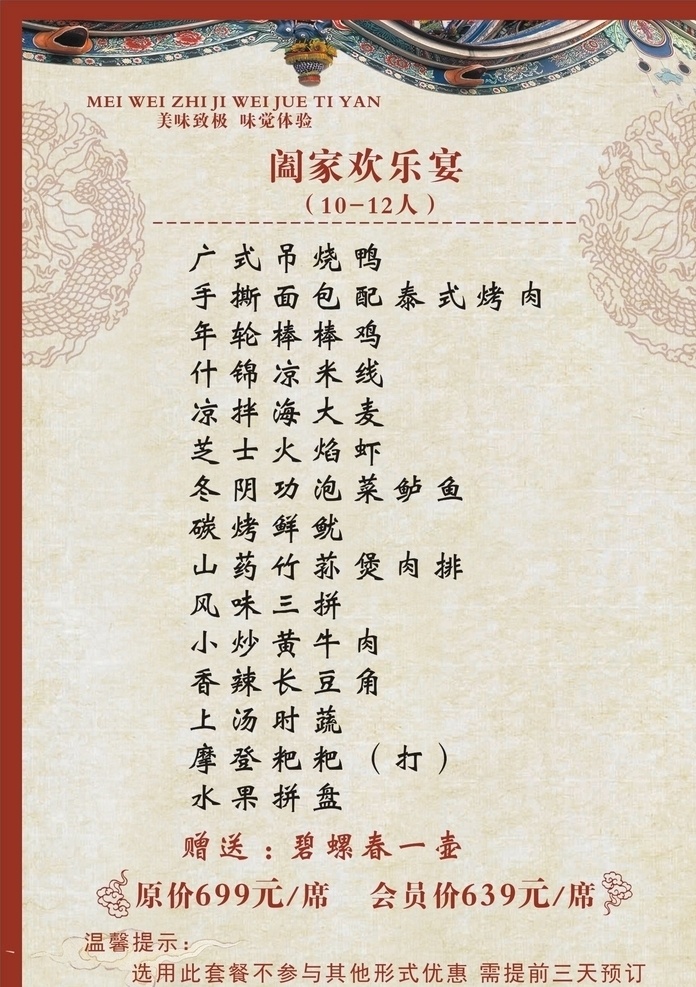 MEI WEI ZHI JI WEI JUE TI YAN
美味致极 味觉体验
阖家欢乐宴
（10-12人）
广式吊烧鸭
手撕面包配泰式烤肉
年轮棒棒鸡
什锦凉米线
凉拌海大麦
芝士火焰虾
冬阴功泡菜鲈鱼
碳烤鲜鱿
山药竹荪煲肉排
风味三拼
小炒黄牛肉
香辣长豆角
上汤时蔬
摩登粑粑（打）
水果拼盘
赠送：碧螺春一壶
原价699元/席 会员价639元/席
温馨提示：
选用此套餐不参与其他形式优惠 需提前三天预订